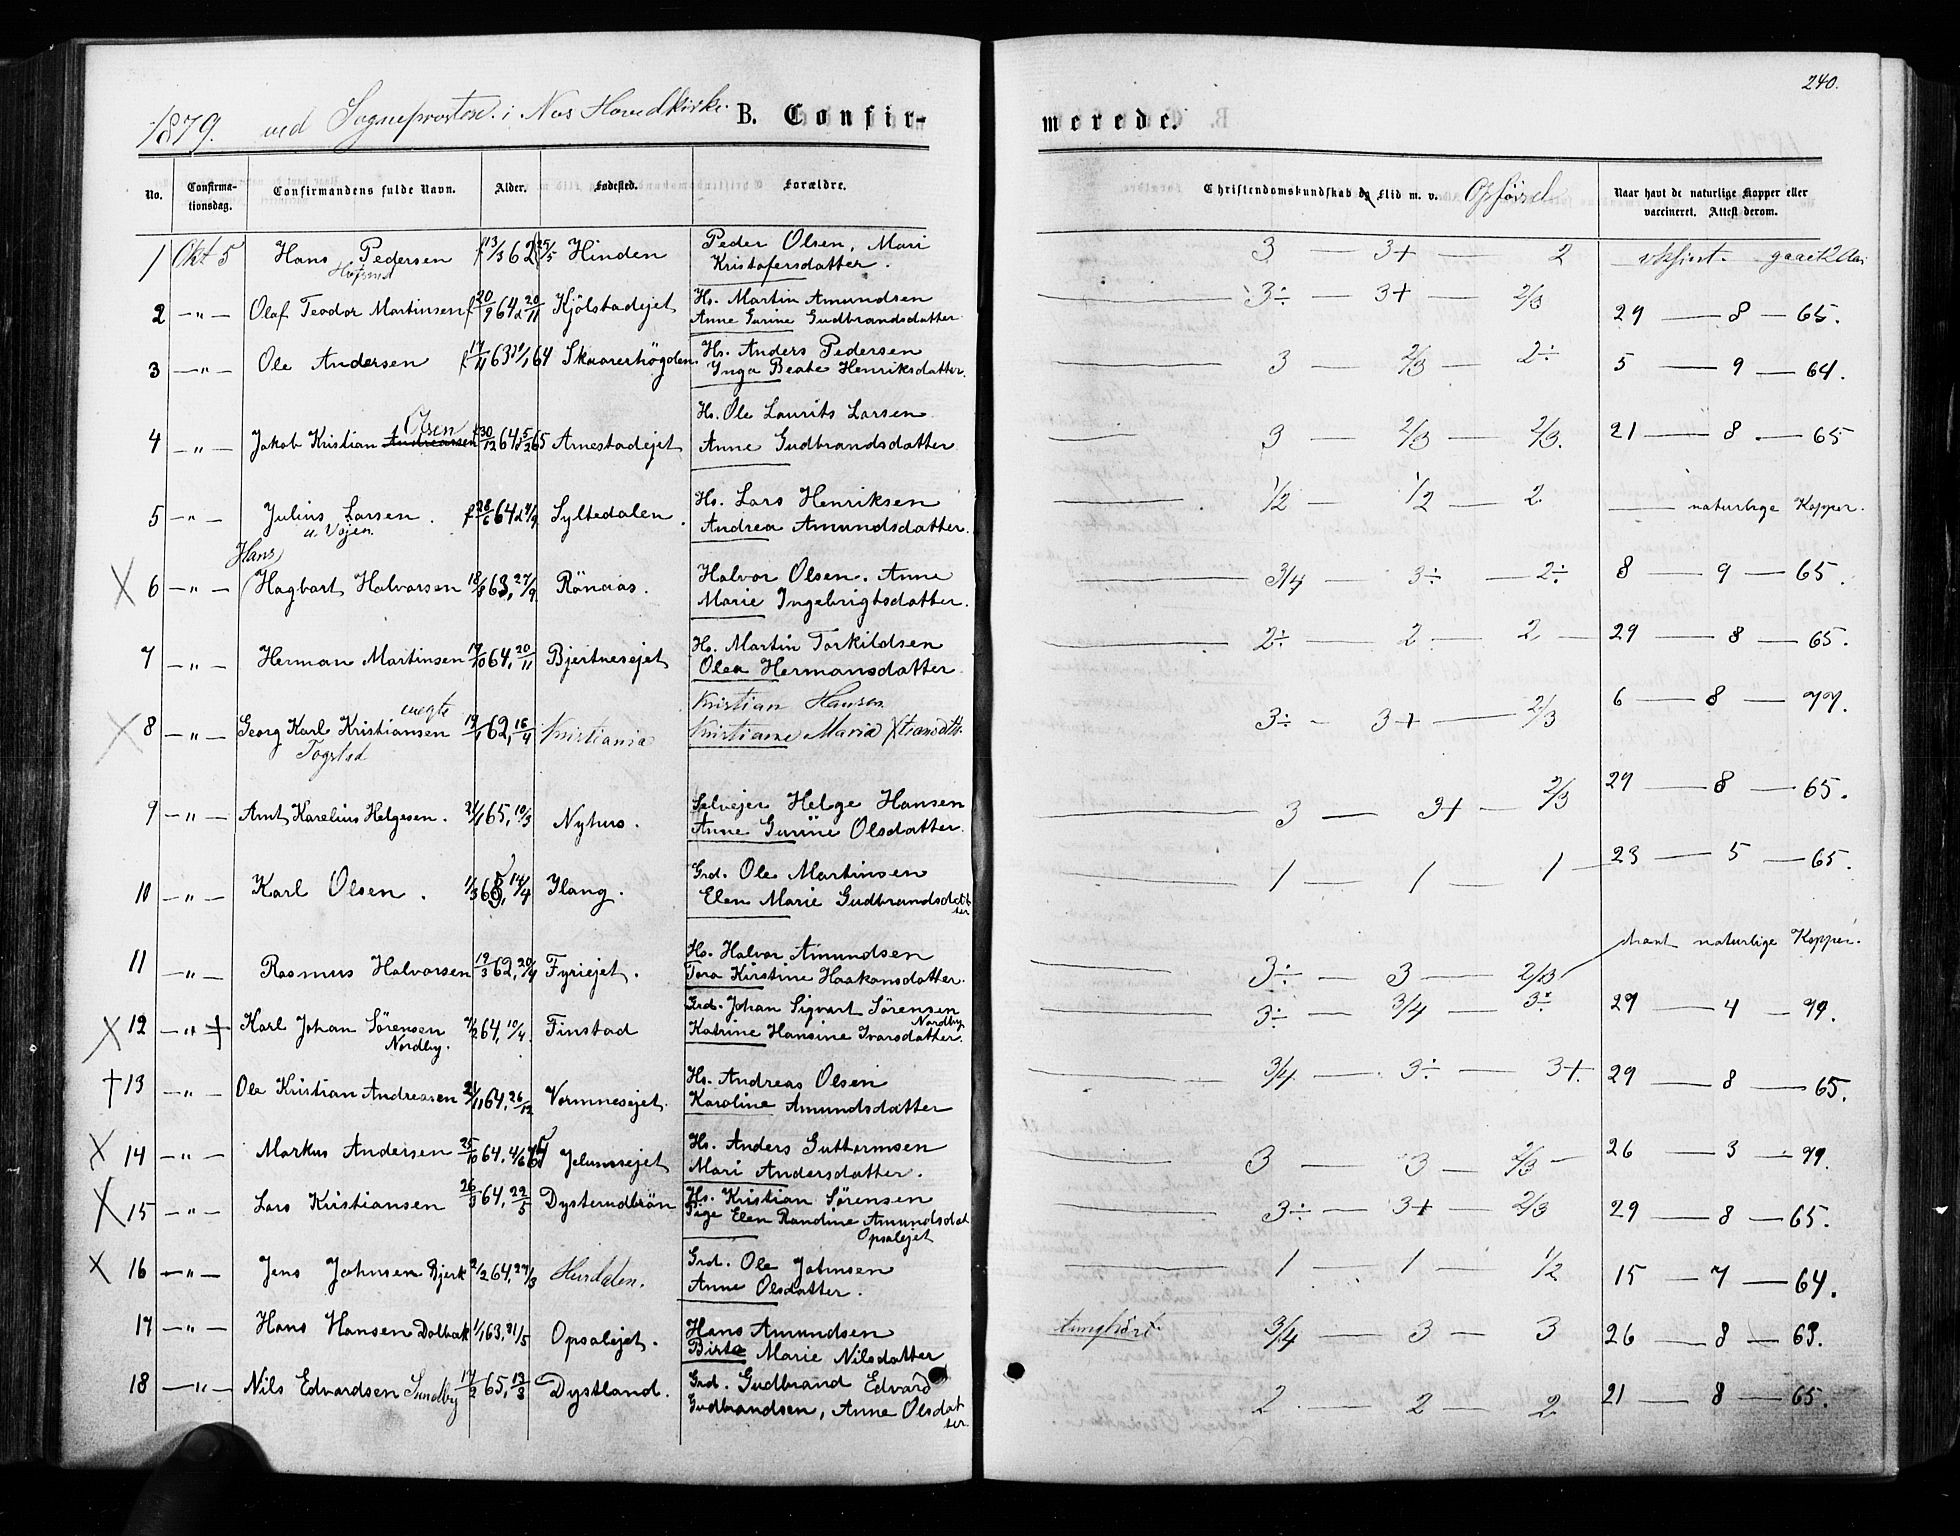 240.
1879. ved Sogneprosten i Nes Hovedkirke B. Confir-
merede.
No. Confirma-tionsdag. Confirmandens fulde Navn. Alder. Fødested. Forældre. Christendomskundskab og Flid m. v. Opførsel Naar havt de naturlige Kopper eller vaccineret. Attest derom.
1 Okt 5 Hans Pedersen f 13/3 62 25/5 Hinden Peder Olsen, Mari Kristofersdatter. 3 — 3+ 2
2 —"— Olaf Teodor Martinsen f 20/9 64 d 20/11 Kjölstadejet Hs. Martin Amundsen Anne Gurine Gudbrandsdatter 3÷ — 3+ — 2/3 29 — 8 — 65.
3 —"— Ole Andersen f 17/11 63 64 Skaarerhögden Hs. Anders Pedersen Inga Beate Henriksdatter. 3 — 2/3 — 2÷ 5 — 9 — 64.
4 —"— Jakob Kristian Andreasen Olsen f 30/12 64 5/2 65 Arnestadejet Hs. Ole Laurits Larsen Anne Gudbrandsdatter 3 — 2/3 — 2/3. 21 — 8 — 65
5 —"— Julius Larsen. f 28/6 64 d 4/9 Syltedalen. Hs. Lars Henriksen Andrea Amundsdatter. 1/2 — 1/2 — 2 — naturlige Kopper.
X 6 —"— Hans Hagbart Halvorsen 18/8 63, 27/9 Rönaas. Halvor Olsen. Anne Marie Ingebrigtsdatter. 3/4 — 3÷ — 2÷ 8 — 9 — 65.
7 —"— Herman Martinsen 17/10 64, 20/11 Bjertnesejet Hs. Martin Torkildsen Olea Hermansdatter 2÷ — 2 — 2 — 29 — 8 — 65.
X 8 —"— Georg Karl Kristiansen uægte 19/1 62, 16/4 Kristiania Kristian Hansen Kristiane Maria 3÷ — 3+ — 2/3 6 — 8 — 77.
9 —"— Arnt Karelius Helgesen. 21/1 65, 10/3 Nyhus. Selvejer Helge Hansen Anne Gurine Olsdatter. 3 — 3+ — 2/3 29 — 8 — 65.
10 —"— Karl Olsen. 1/3 65, 14/4 Ilang. Grd. Ole Martinsen Elen Marie Gudbrandsdatter 1 — 1 — 1 — 23 — 5 — 65.
11 —"— Rasmus Halvorsen 19/3 62, 20/4 Fyriejet. Hs. Halvor Amundsen Tora Kirstine Haakonsdatter. 3÷ — 3 — 2/3 havt naturlige Kopper.
X 12 —"— + Karl Johan Sörensen Nordby. 64, 10/4. Finstad Grd. Johan Sigvart Sörensen Nordby Katrine Hansine Ivarsdatter. 3÷ — 3/4 — 3÷ 29 — 4 — 79.
† 13 —"— Ole Kristian Andreasen 21/11 64, 26/12 Vormnesejet. Hs. Andreas Olsen Karoline Amundsdatter 3/4 — 3÷ — 3+. 29 — 8 — 65.
X 14 —"— Markus Andersen 25/10 64, 4/6 65 Hs. Anders Guttormsen Mari Andersdatter. 3 — 3 — 2/3 — 26 — 3 — 79.
X 15 —"— Lars Kristiansen 26/3 64, 22/5 Dysterudbrön Hs. Kristian Sörensen Pige Elen Randine Amundsdat Opsalejet 3÷ — 3+ — 2/3 29 — 8 — 65.
X 16 —"— Jens Johnsen Bjerk 2/2 64, 27/3 Hurdalen. Grd. Ole Johnsen Anne Olsdatter. 1 — 1 — 1/2 15 — 7 — 64.
17 —"— Hans Hansen Dalbak 1/1 63, 31/5 Opsalejet. Hans Amundsen Birte Marie Nilsdatter tunghört 3/4 — 3 — 3 26 — 8 — 63.
18 —"— Nils Edvardsen Sundby 17/2 65, 12/3 Dystland. Grd. Gudbrand Edvard Gudbrandsen, Anne Olsdatter. 2 — 2 — 2 21 — 8 — 65.